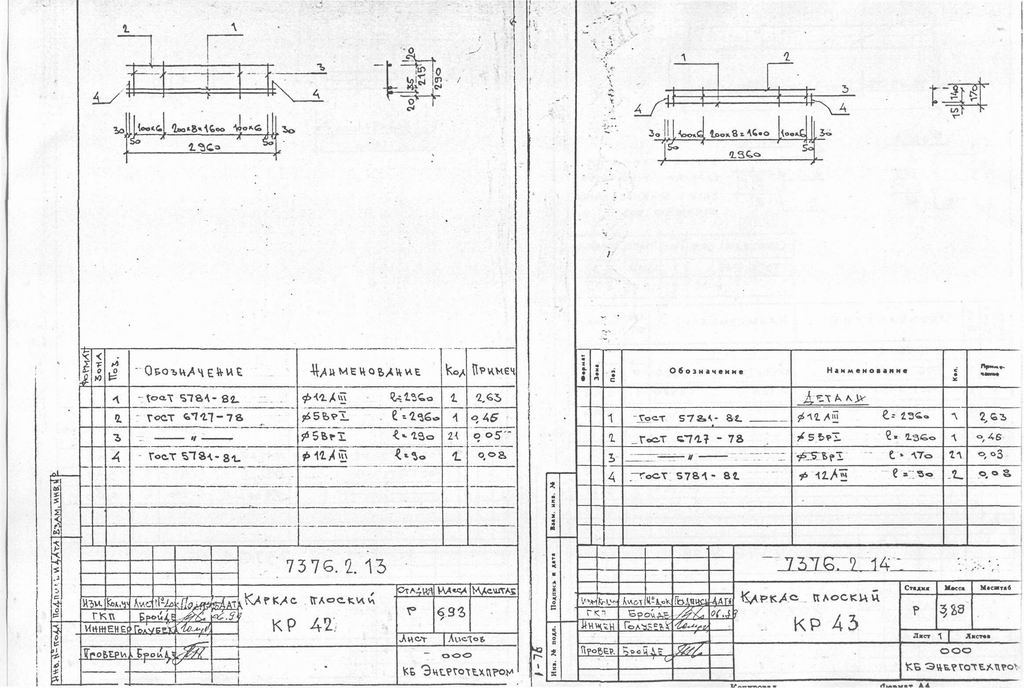 2 1
3
4 4
30 100x6 200x8=1600 100x6 30
50 50
2960
20 35 215 20
290
ФОРМАТ ЗОНА Поз. ОБОЗНАЧЕНИЕ НАИМЕНОВАНИЕ Кол ПРИМЕЧ
1 ГОСТ 5781-82 ⌀12АIII ℓ=2960 2 2,63
2 ГОСТ 6727-78 ⌀5ВрI ℓ=2960 1 0,45
3 —〃— ⌀5ВрI ℓ=290 21 0,05
4 ГОСТ 5781-82 ⌀12АIII ℓ=90 2 0,08
7376.2.13
ИЗМ. Кол.уч Лист №док Подпись ДАТА
ГКП Бройде 06.99
ИНЖЕНЕР Голубева
ПРОВЕРИЛ Бройде
КАРКАС ПЛОСКИЙ
КР 42
СТАДИЯ МАССА МАСШТАБ
Р 6,93
Лист Листов
ООО
КБ ЭНЕРГОТЕХПРОМ
ИНВ.№ ПОДЛ ПОДПИСЬ И ДАТА ВЗАМ. ИНВ.№
1 2
3
4 4
30 100x6 200x8=1600 100x6 30
50 50
2960
15 140
170
Формат Зона Поз. Обозначение Наименование Кол. Примечание
ДЕТАЛИ
1 ГОСТ 5781-82 ⌀12АIII ℓ=2960 1 2,63
2 ГОСТ 6727-78 ⌀5ВрI ℓ=2960 1 0,46
3 —〃— ⌀5ВрI ℓ=170 21 0,03
4 ГОСТ 5781-82 ⌀12АIII ℓ=90 2 0,08
7376.2.14
Лист №док Подпись ДАТА
ГКП Бройде 06.99
ИНЖЕН Голубева
ПРОВЕР. Бройде
КАРКАС ПЛОСКИЙ
КР 43
Стадия Масса Масштаб
Р 3,89
Лист 1 Листов
ООО
КБ ЭНЕРГОТЕХПРОМ
Инв. № подл. Подпись и дата Взам. инв. №
1-76
Копировал Формат А4